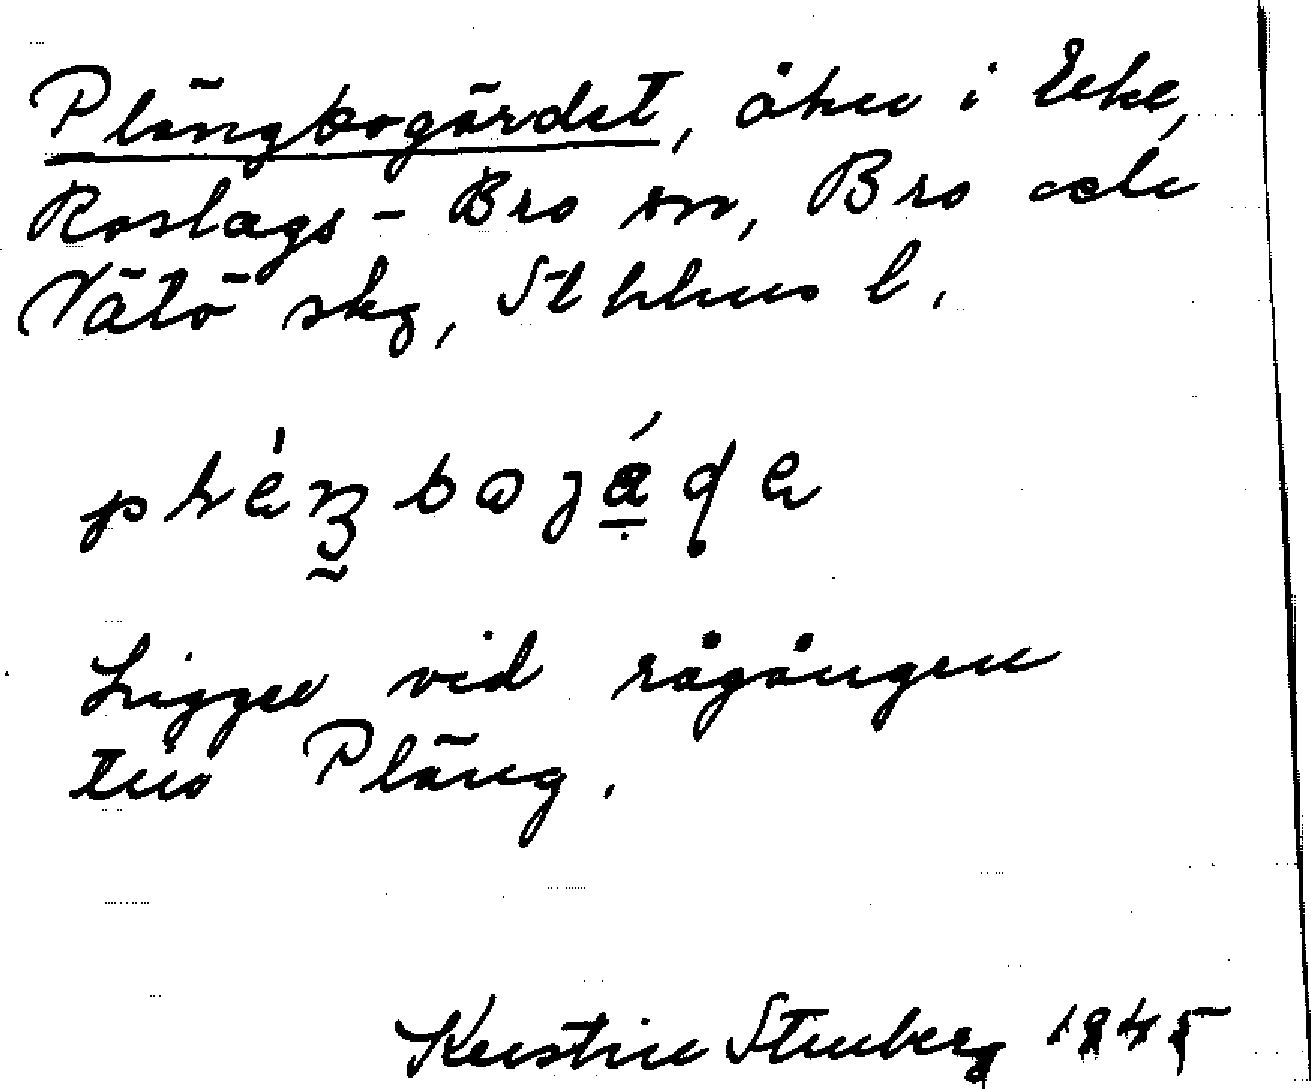 Plängbogärdet, åker i Eke,
Roslags-Bro sn, Bro och
Vätö skg, Sthlms l.
Ligger vid rågången
mot Pläng.
Kerstin Stenberg 1945